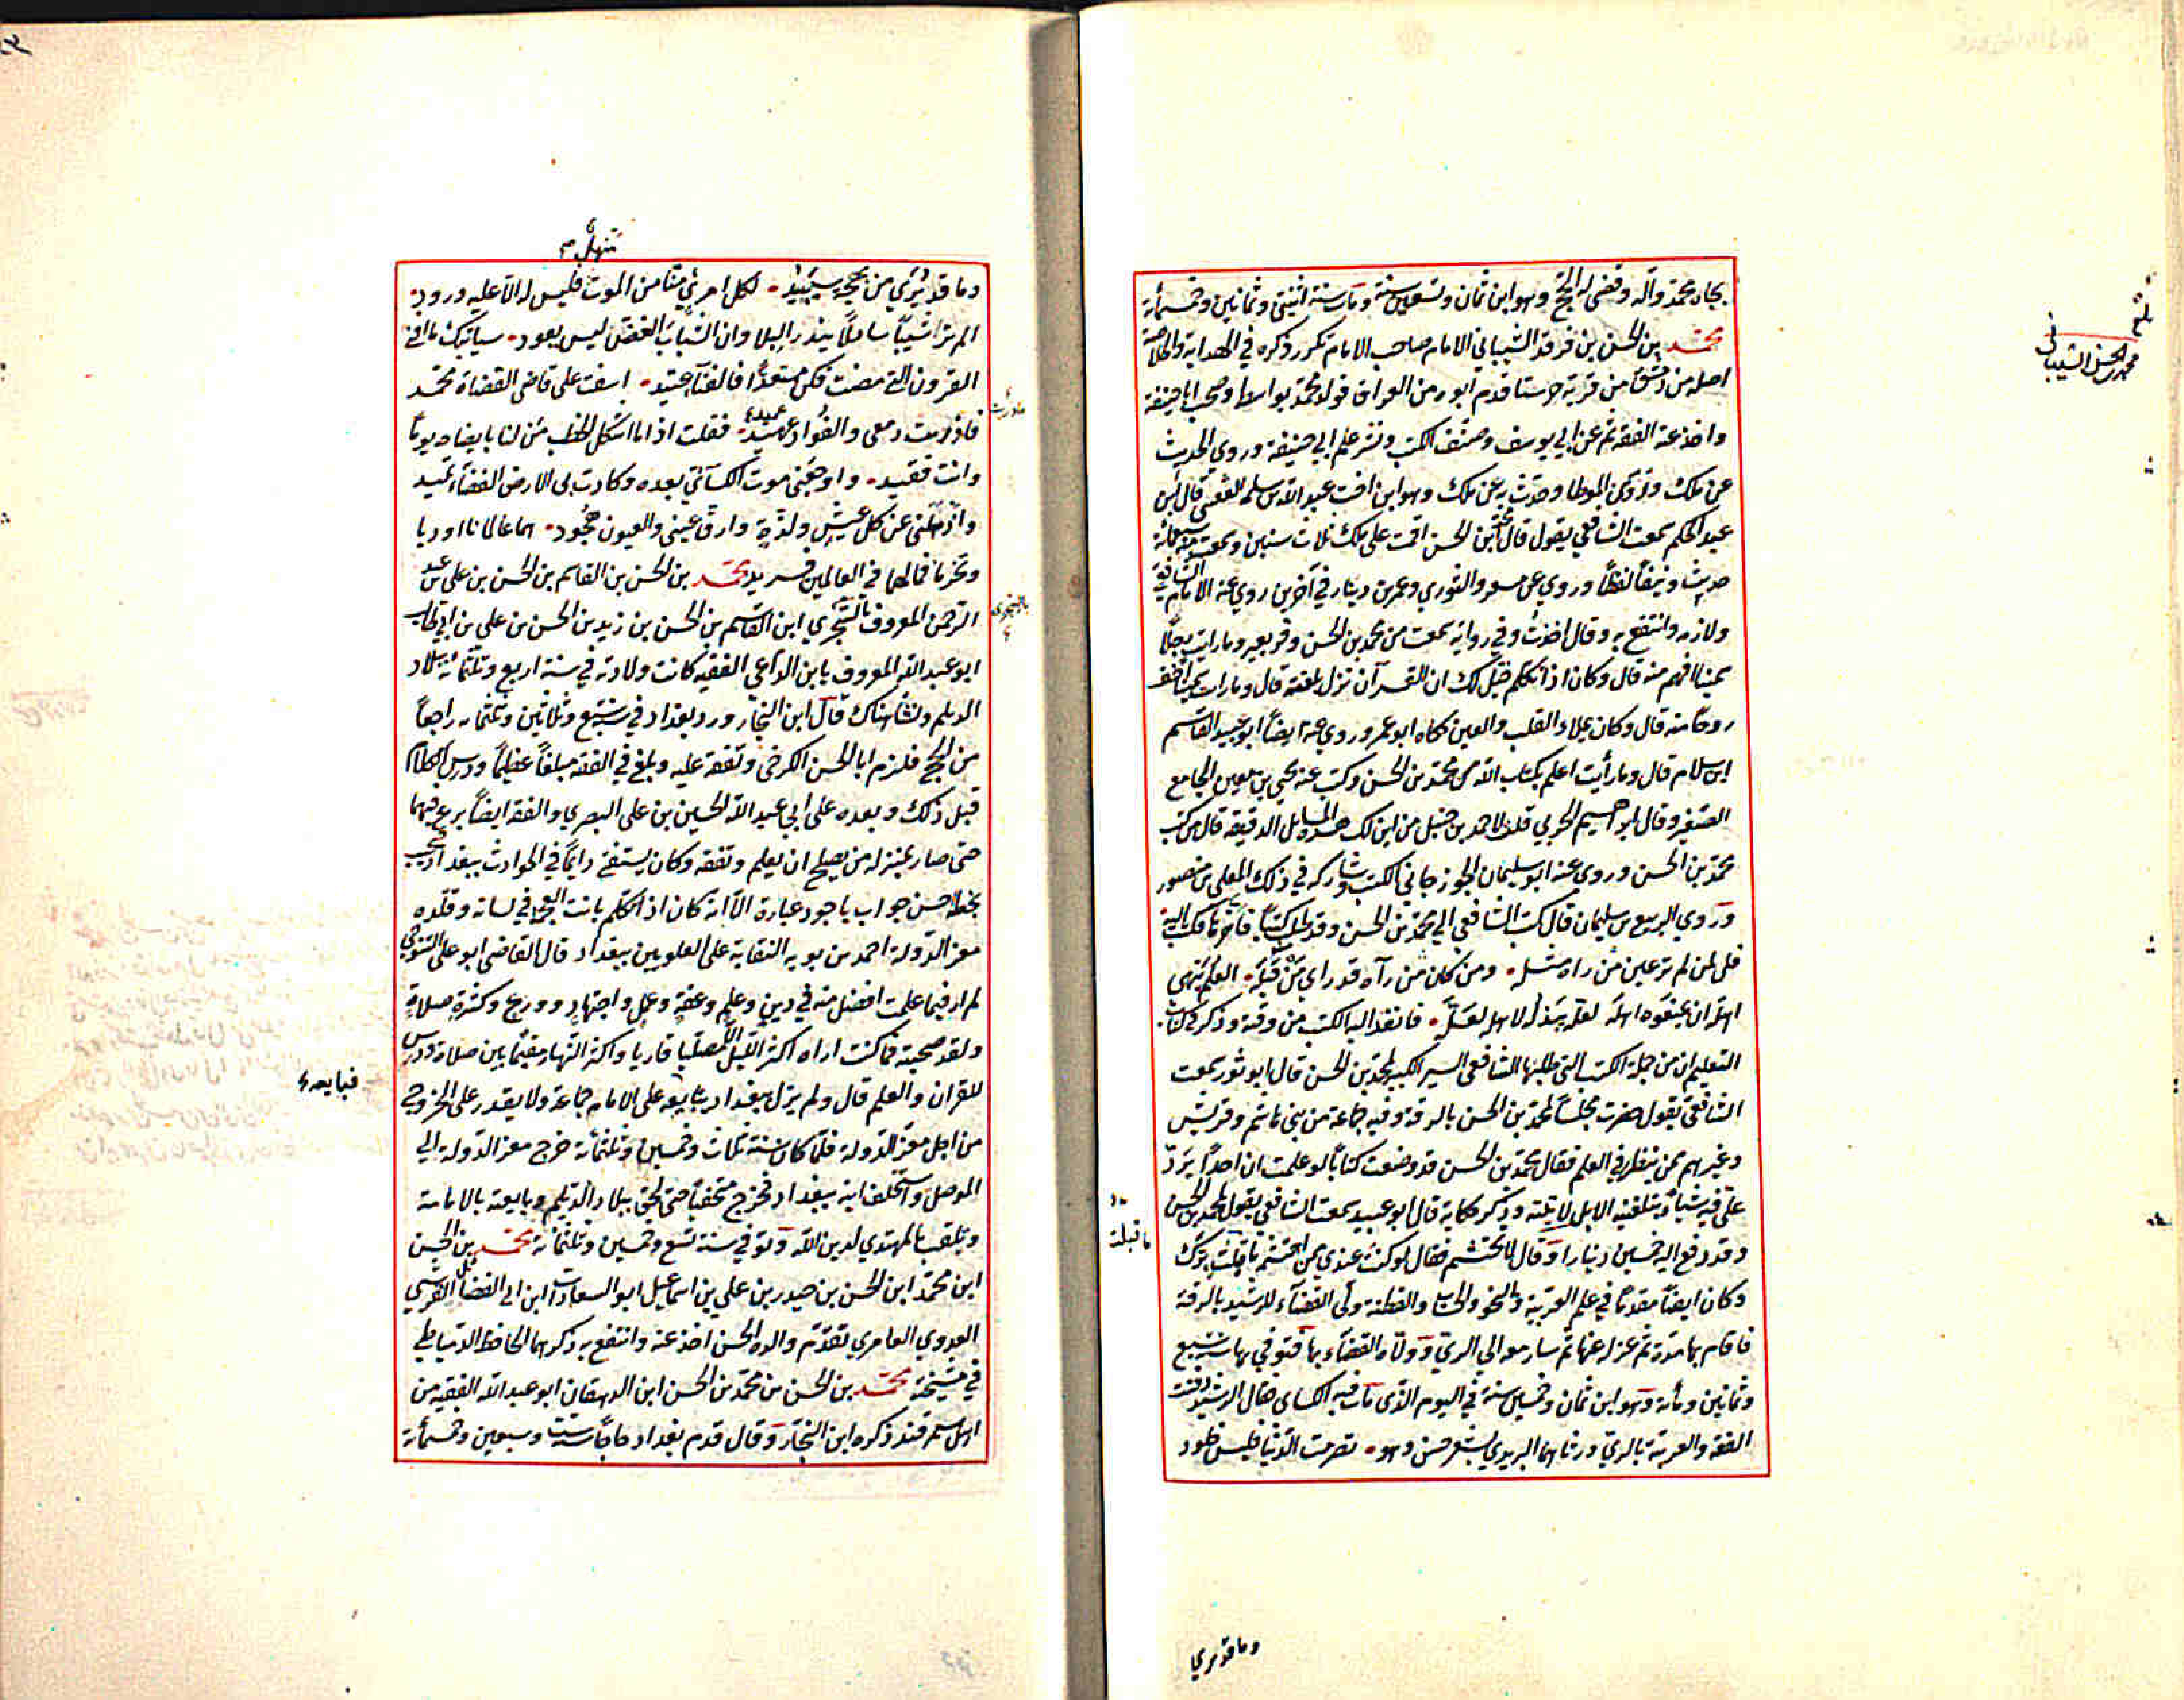 بجاه محمد وآله وقضى له الحج وهو ابن ثمان وتسعين سنة ومات سنة اثنتي وثمانين وخمسمأية
محمد بن الحسن بن فرقد الشيباني الامام صاحب الامام تكرر ذكره في الهداية والخلاصة
اصله من دمشق من قرية حرستا قدم ابوه من العراق فولد محمد بواسط وصحب ابا حنيفة
واخذ عنه الفقه ثم عن ابي يوسف وصنّف الكتب ونشر علم ابي حنيفة وروي الحديث
عن ملك ودوّن الموطا وحدّث به عن ملك وهو ابن اخت عبد الله بن سلمه القعنبي قال ابن
عبد الحكم سمعت الشافعي يقول قال محمد بن الحسن اقمت على ملك ثلاث سنين وسمعت منه سبعمائة
حديث ونيفاً لفظاً وروي عن مسعر والثوري وعمر بن دينار في آخرين روي عنه الامام الشافعي
ولازمه وانتفع به وقال اخذت وفي رواية سمعت من محمد بن الحسن وقر بعير وما رايت رجلاً
سميناً افهم منه قال وكان اذا تكلم خيل لك ان القرآن نزل بلغته قال وما رايت سميناً اخف
روحاً منه قال وكان يملاء القلب والعين كناه ابو عمر وروي عنه ايضاً ابو عبيد القاسم
ابن سلام قال وما رأيت اعلم بكتاب الله من محمد بن الحسن وكتب عنه يحيي بن معين الجامع
الصغير وقال ابراهيم الحربي قلت لاحمد بن حنبل من اين لك هذه المسايل الدقيقة قال من كتب
محمد بن الحسن وروي عنه ابو سليمان الجوزجاني الكتب وشاركه في ذلك المعلى بن منصور
وروي الربيع بن سليمان قال كتب الشافعي الي محمد بن الحسن وقد طلب كتباً فاخرها فكتب اليه
قل لمن لم تر عين من راه مثله ٠ ومن كان من رآه قد راي من قبله ٠ العلم ينهى
اهله ان يمنعوه اهله لعله يبذله لاهله لعله ٠ فانفذ اليه الكتب من وقته وذكر في كتاب
التعليم ان من جملة الكتب التي طلبها الشافعي السير الكبير لمحمد بن الحسن قال ابو ثور سمعت
الشافعي يقول حضرت مجلساً لمحمد بن الحسن بالرقة وفيه جماعة من بني هاشم وقريش
وغيرهم ممن ينظر في العلم فقال محمد بن الحسن قد وضعت كتاباً لو علمت ان احداً يردّ
علّي فيه شيأ تبلغنيه الابل لاتيته وذكر حكاية قال ابو عبيد سمعت الشافعي يقول لمحمد بن الحسن
وقد دفع اليه خمسين دينارا وقال لا تحتشم فقال لو كنت عندي ممن احتشم ما قبلت برّك
وكان ايضاً مقدماً في علم العربية والنحو والحساب والفطنة ولي القضاء للرشيد بالرقة
فاقام بها مدة ثم عزله عنها ثم سار معه الي الري وولاه القضاء بها فتوفي بها سنة سبع
وثمانين ومأية وهو ابن ثمان وخمسين سنة في اليوم الذي مات فيه الكساي فقال الرشيد دفنت
الفقه والعربية بالري ورثاهما اليزيدي بشعر حسن وهو ٠ تصرمت الدنيا فليس خلود
وما قد نري
محمد بن الحسن الشيباني
ما قبلت
وما قد نُري من بهجة سيبيد ٠ لكل امرئ منّا من الموت فليس له الا عليه ورود ٠
الم تر شيباً شاملاً ينذر البلا وان الشباب الغض ليس يعود ٠ سياتيك ما افني
القرون التي مضت فكن مستعداً فالفناء عتيد ٠ اسفت على قاضي القضاة محمد
فاذريت دمعي والفؤاد عميد ٠ فقلت اذا ما اشكل الخطب من لنا بايضاحه يوماً
وانت فقيد ٠ واوجعني موت الكسائي بعده وكادت بي الارض الفضاء تميد
واذهلني عن كل عيش ولذة وارق عيني والعيون هجود ٠ هما عالمانا اوديا
وتخرما فما لهما في العالمين فريد محمد بن الحسن بن القاسم بن الحسن بن علي بن عبد
الرحمن المعروف بالشجري ابن القاسم بن الحسن بن زيد بن الحسن بن علي بن ابي طالب
ابو عبد الله المعروف بابن الداعي الفقيه كانت ولادته في سنة اربع وثلثمائة ببلاد
الديلم ونشأ هناك قال ابن النجار ورد بغداد في سنة سبع وثلاثين وثلثمائه راجعاً
من الحج فلزم ابا الحسن الكرخي وتفقه عليه وبلغ في الفقه مبلغاً عظيماً ودرس الكلام
قبل ذلك وبعده على ابي عبد الله الحسين بن علي البصري والفقه ايضاً برع فيهما
حتى صار بمنزله من يصلح ان يعلم وتفقه وكان يستفتى دايماً في الحوادث ببغداد فيجيب
بخطه احسن جواب باجود عبارة الا انه كان اذا تكلم بانت العجمة في لسانه وقلّده
معز الدولة احمد بن بويه النقابة على العلويين ببغداد قال القاضي ابو علي التنوخي
لم ار فيما علمت افضل منه في دين وعلم وعفة وعمل واجتهاد وورع وكثرة صلاة
ولقد صحبته فما كنت اراه اكثر الليل الا مصلياً قاريا واكثر النهار مقيماً بين صلاة ودرس
للقران والعلم قال ولم يزل ببغداد يبايعه على الامامه جماعة ولا يقدر على الخروج
من اجل معز الدولة فلما كان سنة ثلاث وخمسين وثلثمائة خرج معز الدولة الي
الموصل واستخلف ابنه ببغداد فخرج مختفياً حتى لحق ببلاد الديلم وبايعته بالامامة
وتلقب بالمهتدي لدين الله وتوفي سنة تسع وخمسين وثلثمائة محمد بن الحسن
ابن محمد ابن الحسن بن حيدر بن علي بن اسماعيل ابو السعادات ابن ابي الفضايل القرشي
العدوي العامري تقدّم والده الحسن اخذ عنه وانتفع به ذكرهما الحافظ الدمياطي
في مشيخته محمد بن الحسن بن محمد بن الحسن ابن الدهقان ابو عبد الله الفقيه من
اهل سمرقند ذكره ابن النجار وقال قدم بغداد حاجاً سنة ست وسبعين وخمسمأية
فبايعه